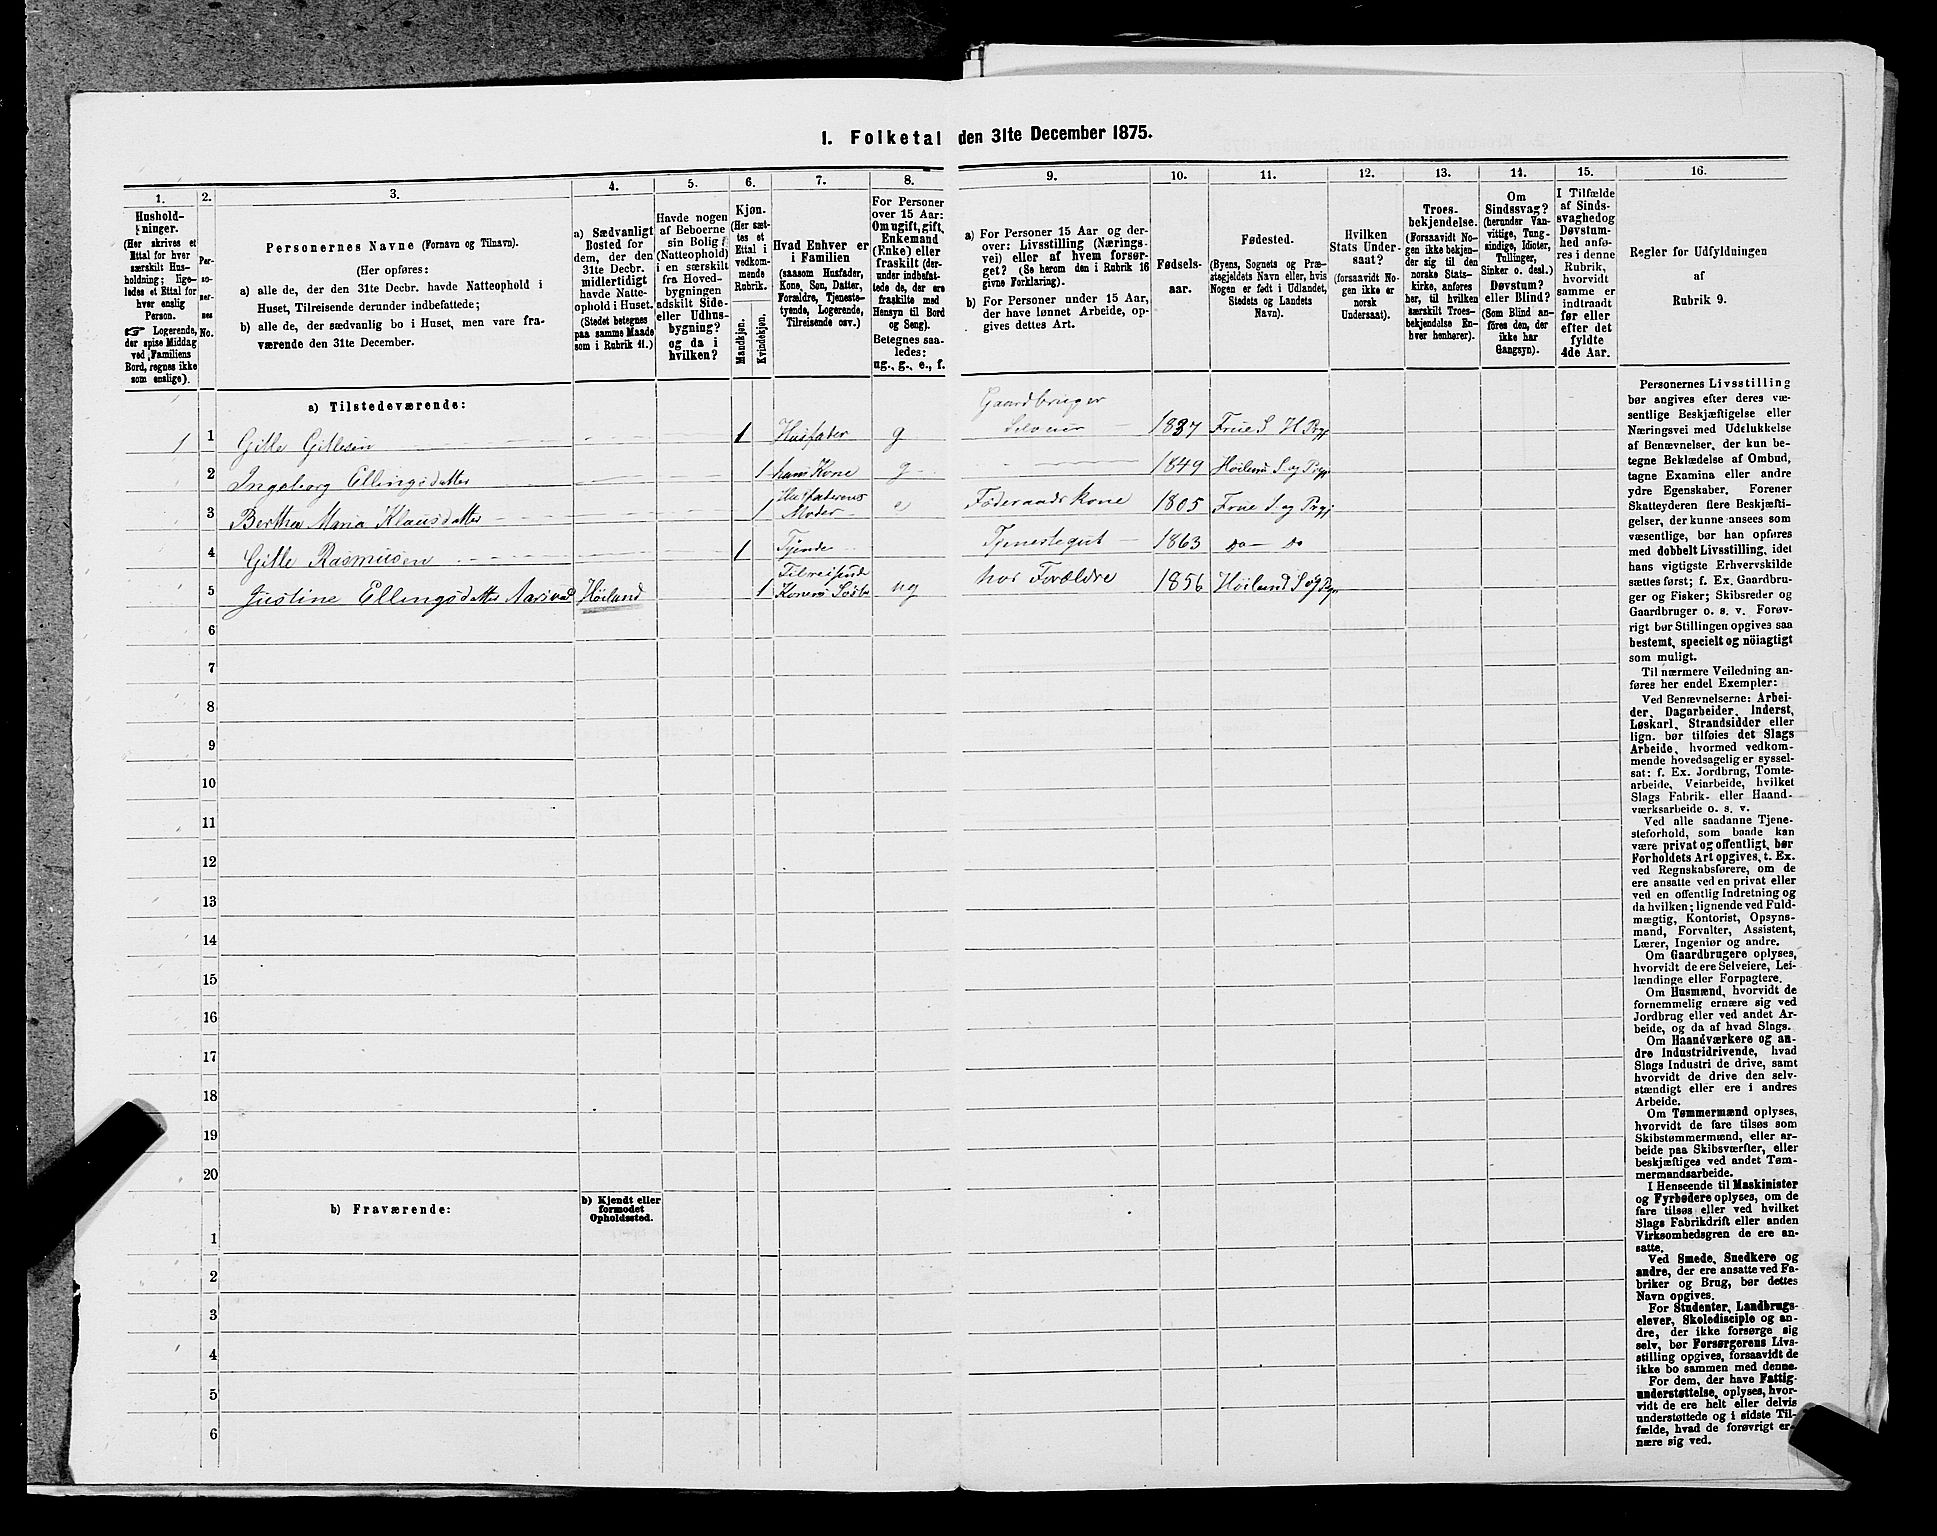 1. Folketal den 31te December 1875.
1.
Hushold-
ninger.
(Her skrives et
Ettal for hver
særskilt Hus-
holdning; lige-
ledes et Ettal for
hver enslig
Person.
☞ Logerende,
der spise Middag
ved Familiens
Bord, regnes ikke
som enslige).
2.
Per-
so-
ner-
nes
No.
3.
Personernes Navne (Fornavn og Tilnavn).
(Her opføres:
a) alle de, der den 31te Decbr. havde Natteophold i
Huset, Tilreisende derunder indbefattede;
b) alle de, der sædvanlig bo i Huset, men vare fra-
værende den 31te December.
4.
a) Sædvanligt
Bosted for
dem, der den
31te Decbr.
midlertidigt
havde Natte-
ophold i Huset.
(Stedet betegnes
paa samme Maade
som i Rubrik 11.)
5.
Havde nogen
af Beboerne
sin Bolig
(Natteophold)
i en særskilt
fra Hoved-
bygningen
adskilt Side-
eller Udhus-
bygning?
og da i
hvilken?
6.
Kjøn.
(Her sæt-
tes et
Ettal i
vedkom-
mende
Rubrik.
Mandkjøn.
Kvindekjøn.
7.
Hvad Enhver er
i Familien
(saasom Husfader,
Kone, Søn, Datter,
Forældre, Tjeneste-
tyende, Logerende,
Tilreisende osv.)
8.
For Personer
over 15 Aar:
Om ugift, gift,
Enkemand
(Enke) eller
fraskilt (der-
under indbefat-
tede de, der ere
fraskilte med
Hensyn til Bord
og Seng).
Betegnes saa-
ledes:
ug., g., e., f.
9.
a) For Personer 15 Aar og der-
over: Livsstilling (Nærings-
vei) eller af hvem forsør-
get? (Se herom den i Rubrik 16
givne Forklaring).
b) For Personer under 15 Aar,
der have lønnet Arbeide, op-
gives dettes Art.
10.
Fødsels-
aar.
11.
Fødested.
(Byens, Sognets og Præ-
stegjeldets Navn eller, hvis
Nogen er født i Udlandet,
Stedets og Landets
Navn).
12.
Hvilken
Stats Under-
saat?
(forsaavidt No-
gen ikke er
norsk
Undersaat).
13.
Troes-
bekjendelse.
(Forsaavidt No-
gen ikke bekjen-
der sig til den
norske Stats-
kirke, anføres
her, til hvilken
særskilt Troes-
bekjendelse En-
hver henhører).
14.
Om
Sindssvag?
(herunder Van-
vittige, Tung-
sindige, Idioter,
Tullinger,
Sinker o. desl.)
Døvstum?
eller Blind?
(Som Blind an-
føres den, der
ikke har
Gangsyn).
15.
I Tilfælde
af Sinds-
svaghed og
Døvstum-
hed anfø-
res i denne
Rubrik,
hvorvidt
samme er
indtraadt
før eller
efter det
fyldte
4de Aar.
16.
Regler for Udfyldningen
af
Rubrik 9.
a) Tilstedeværende:
Gaardbruger
1 1 Gitle Gitlesen 1 Husfader g Selveier 1837 Frue S H Prgj
2 Ingeborg Ellingsdatter 1 hans Kone g 1849 Høiland S og Prgj
3 Bertha Maria Klausdatter 1 Husfaderens Moder e Føderaadskone 1805 Frue S og Prgj
4 Gitle Rasmusen 1 Tjende Tjenestegut 1863 Do Do
5 Justine Ellingsdatter Høiland 1 Tilreisende Konens ug hos Forældre 1856 Høiland S og Prgj
6
7
8
9
10
11
12
13
14
15
16
17
18
19
20
b) Fraværende:
b) Kjendt eller
formodet
Opholdssted.
1
2
3
4
5
6
Personernes Livsstilling
bør angives efter deres væ-
sentlige Beskjæftigelse eller
Næringsvei med Udelukkelse
af Benævnelser, der kun be-
tegne Beklædelse af Ombud,
tagne Examina eller andre
ydre Egenskaber. Forener
Skatteyderen flere Beskjæfti-
gelser, der kunne ansees som
væsentlige, bør han opføres
med dobbelt Livsstilling, idet
hans vigtigste Erhvervskilde
sættes først; f. Ex. Gaardbru-
ger og Fisker; Skibsreder og
Gaardbruger o. s. v. Forøv-
rigt bør Stillingen opgives saa
bestemt, specielt og nöiagtigt
som muligt.
Til nærmere Veiledning an-
føres her endel Exempler:
Ved Benævnelserne: Arbei-
der, Dagarbeider, Inderst,
Løskarl, Strandsidder eller
lign. bør tilføies det Slags
Arbeide, hvormed vedkom-
mende hovedsagelig er syssel-
sat: f. Ex. Jordbrug, Tomte-
arbeide, Veiarbeide, hvilket
Slags Fabrik- eller Haand-
værksarbeide o. s. v.
Ved alle saadanne Tjene-
steforhold, som baade kan
være privat og offentligt, bør
Forholdets Art opgives, t. Ex.
ved Regnskabsførere, om de
ere ansatte ved en privat eller
ved en offentlig Indretning og
da hvilken; lignende ved Fuld-
mægtig, Kontorist, Opsyns-
mand, Forvalter, Assistent,
Lærer, Ingeniør og andre.
Om Gaardbrugere oplyses,
hvorvidt de ere Selveiere, Lei-
lændinge eller Forpagtere.
Om Husmænd, hvorvidt de
fornemmelig ernære sig ved
Jordbrug eller ved andet Ar-
beide, og da af hvad Slags.
Om Haandværkere og an-
dre Industridrivende, hvad
Slags Industri de drive, samt
hvorvidt de drive den selv-
stændigt eller ere i andres
Arbeide.
Om Tømmermænd oplyses,
hvorvidt de fare tilsøs som
Skibstømmermænd, eller ar-
beide paa Skibsværfter, eller
beskjæftiges ved andet Tøm-
mermandsarbeide.
I Henseende til Maskinister
og Fyrbødere oplyses, om de
fare tilsøs eller ved hvilket
Slags Fabrikdrift eller anden
Virksomhedsgren de ere an-
satte.
Ved Smede, Snedkere og
andre, der ere ansatte ved Fa-
briker og Brug, bør dettes
Navn opgives.
For Studenter, Landbrugs-
elever, Skoledisciple og an-
dre, der ikke forsørge sig
selv, bør Forsørgerens Livs-
stilling opgives, forsaavidt de
ikke bo sammen med denne.
For dem, der have Fattig-
understøttelse, oplyses, hvor-
vidt de ere helt eller delvis
understøttede og i sidste Til-
fælde, hvad de forøvrigt er-
nære sig ved.